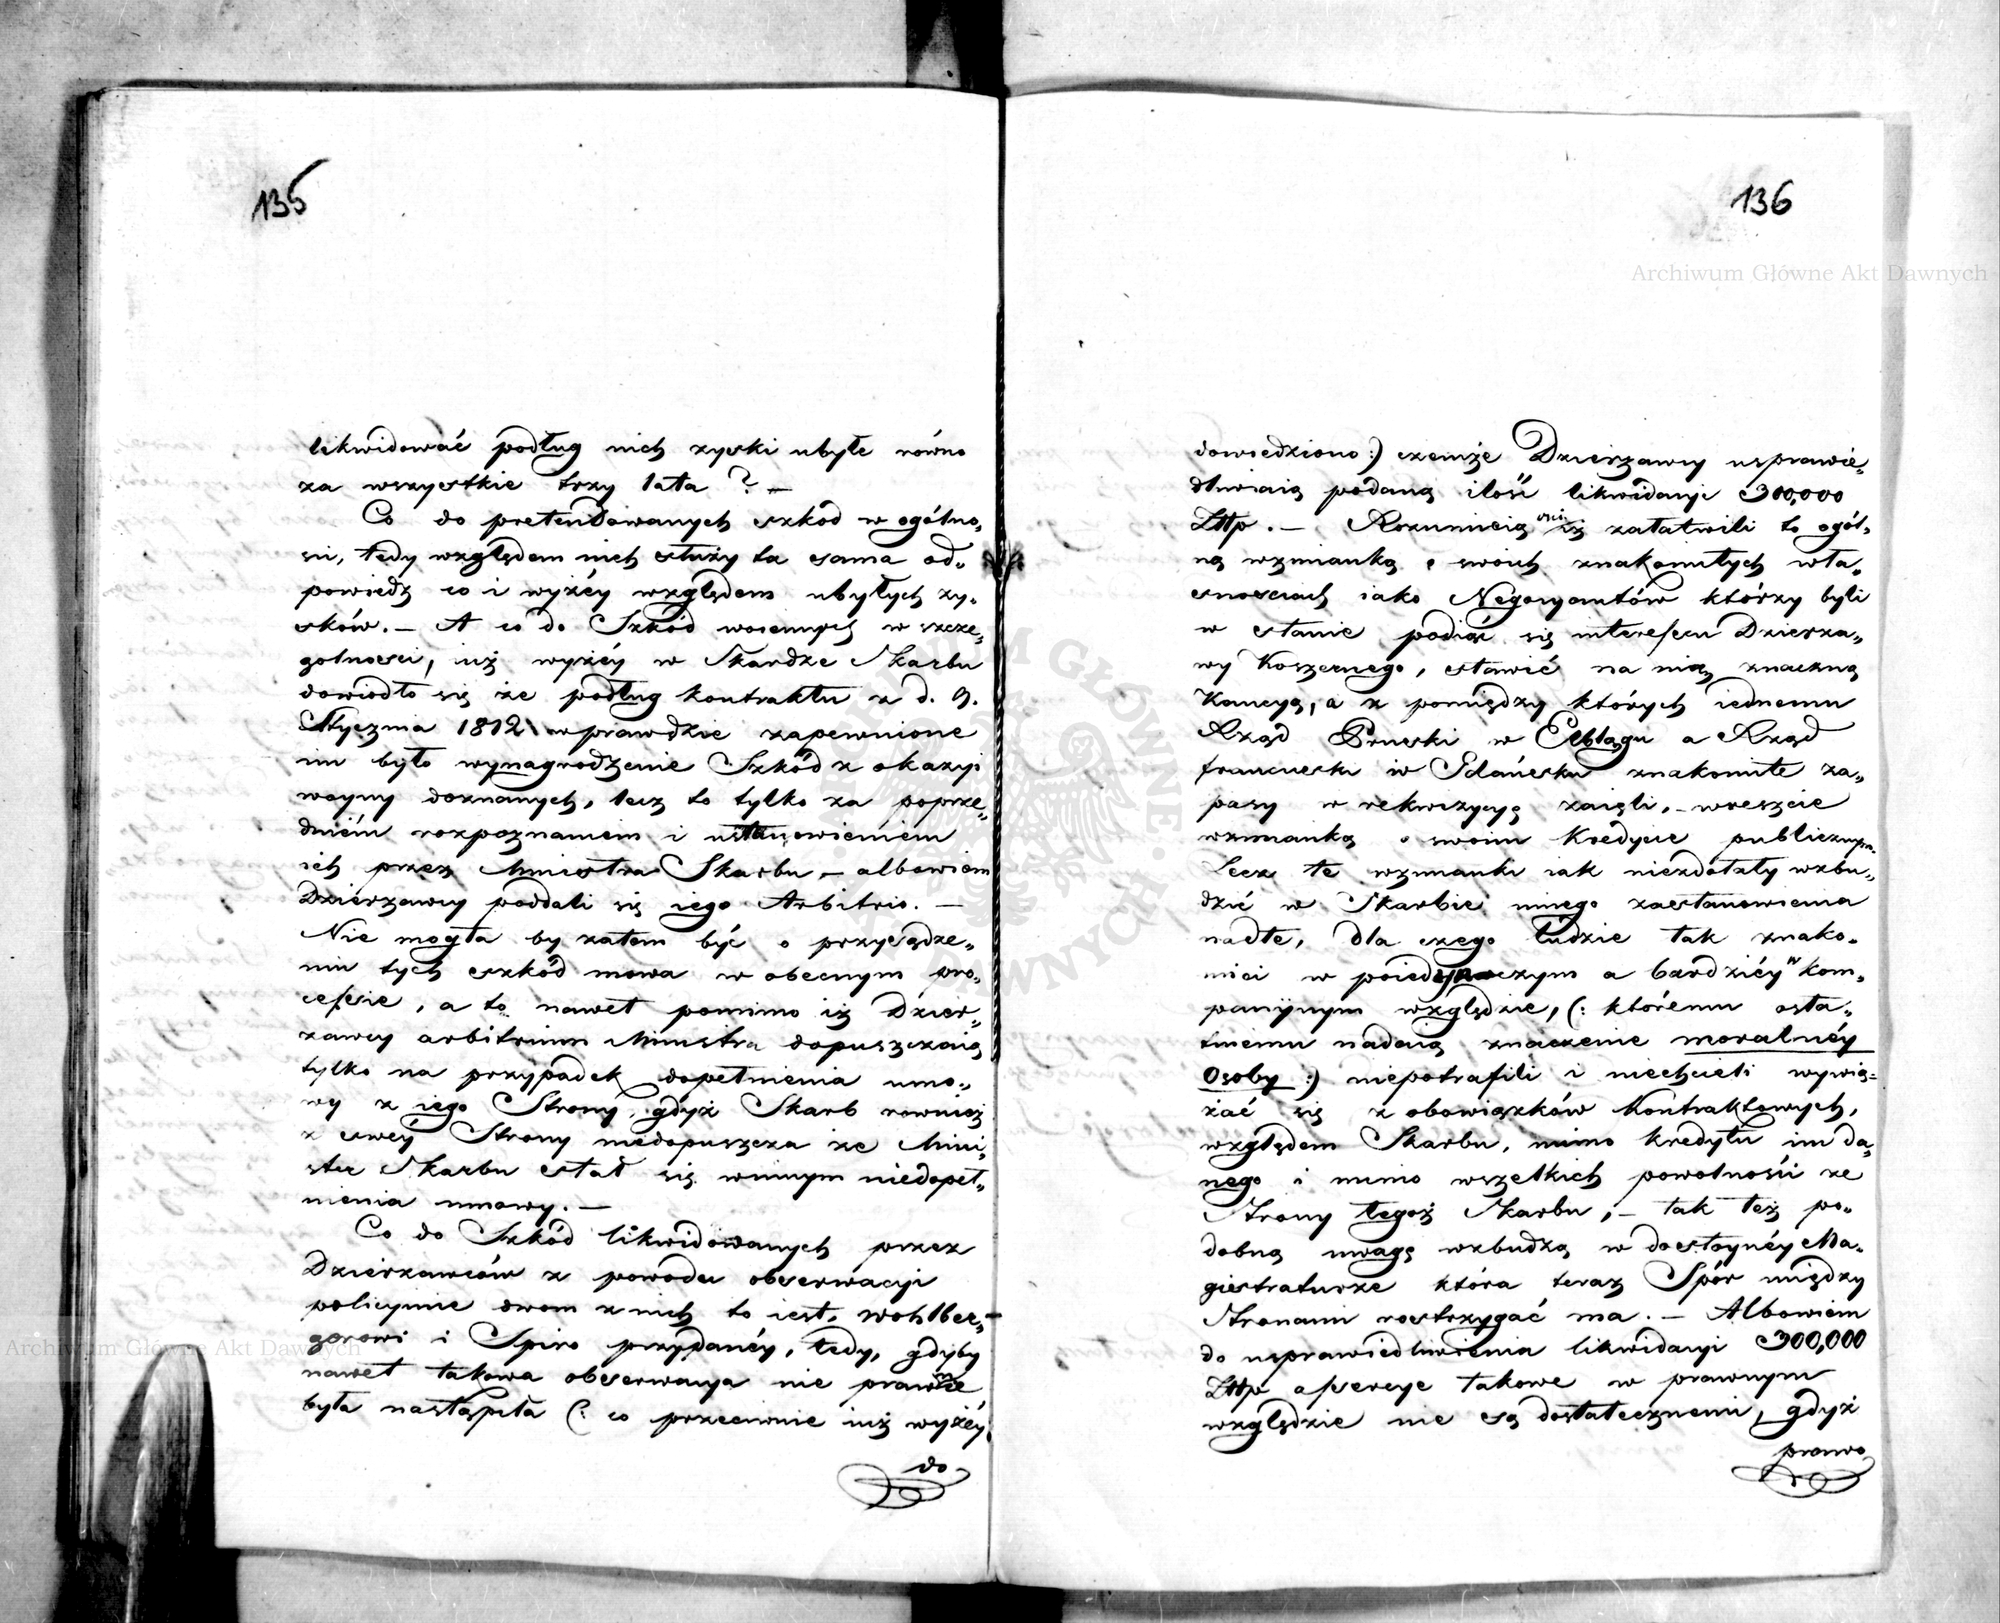 135
likwidować podług nich zyski ubyłe równo
za wszystkie trzy lata ? —
Co do pretendowanych szkód w ogólno„
ści, tedy względem nich służy ta sama od„
powiedz co i wyżéy względem ubyłych zy„
sków. — A co do Szkód wojennych w szcze„
golności, iuż wyżéy w Skardze Skarbu
dowiodło się że podług kontraktu z d. 9.
Stycznia 1812 wprawdzie zapewnione
im było wynagrodzenie Szkód z okazyi
woyny doznanych, lecz to tylko za poprze„
dniém rozpoznaniem i ustanowieniem
ich przez Ministra Skarbu, — albowiem
Dzierzawcy poddali się iego Arbitrio. —
Nie mogła by zatem być o przysądze„
niu tych szkód mowa w obecnym pro„
cessie, a to nawet pomimo iż Dzier„
zawcy arbitrium Ministra dopuszczaią
tylko na przypadek dopełnienia umo„
wy z iego Strony, gdyż Skarb rownież
z swéy Strony niedopuszcza że Mini„
ster Skarbu stał się winnym niedopeł„
nienia umowy. —
Co do Szkód likwidowanych przez
Dzierzawców z powodu obserwacyi
policyinie dwom z nich to iest, Wohlber„
gerowi i Spiro przydanéy, tedy, gdyby
nawet takowa obserwacya nie prawnie
była nastąpiła (: co przeciwnie iuż wyżéy
do
136
Archiwum Główne Akt Dawnych
dowiedziono :) czemże Dzierżawcy usprawie„
dliwiaią podaną ilość likwidacyi 300,000
Złłp. — Rozumieią oni iż załatwili to ogól„
ną wzmianką o swoich znakomitych wła„
snościach iako Negocyantów którzy byli
w stanie podiąć się interessu Dzierza„
wy Koszernego, stawić na nią znaczną
Kaucyą, a z pomiędzy których iednemu
Rząd Pruski w Elblągu a Rząd
francuski w Gdańsku znakomite za„
pasy w rekwizycyę zaięli, — wreszcie
wzmianką o swoim Kredycie publicznym.
Lecz te wzmianki iak niezdołały wzbu„
dzić w Skarbie innego zastanowienia
nadte, dla czego ludzie tak znako„
mici w poiedynczym a bardziéy w kom„
panijnym względzie, (: któremu osta„
tniemu nadaią znaczenie moralnéy
Osoby :) niepotrafili i niechcieli wywią„
zać się z obowiązków Kontraktowych,
względem Skarbu, mimo kredytu im da„
nego i mimo wszelkich powolności ze
Strony tegoż Skarbu, — tak też po„
dobną uwagę wzbudzą w dostoynéy Ma„
gistraturze która teraz Spór między
Stronami rostrzygać ma. — Albowiem
do usprawiedliwienia likwidacyi 300,000
Złłp assercye takowe w prawnym
względzie nie są dostatecznemi, gdyż
prawo
Archiwum Główne Akt Dawnych